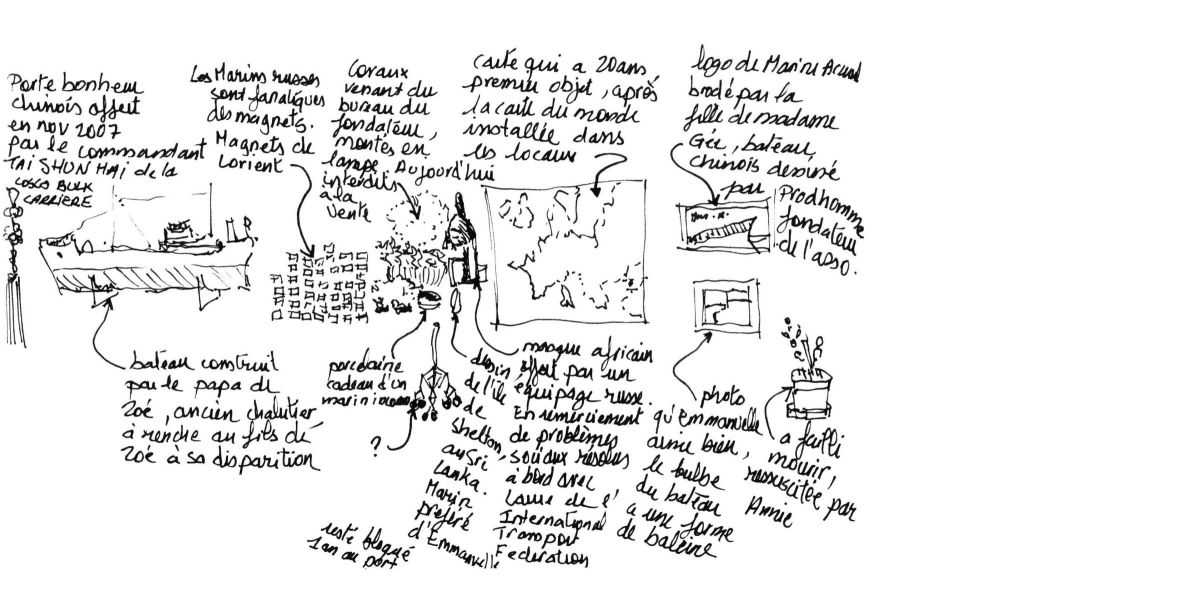 Porte bonheur
chinois offert
en nov 2007
par le commandant
TAI SHUN HAI de la
COSCO BULK
CARRIERE
Les Marins russes
sont fanatiques
des magnets.
Magnets de
Lorient
Coraux
venant du
bureau du
fondateur,
montés en
lampe, Aujourd'hui
interdits
à la
vente
carte qui a 20 ans
premier objet, après
la carte du monde
installée dans
les locaux
logo de Marine Accueil
brodé par la
fille de madame
Gée, bateau,
chinois dessiné
par Prodhomme
fondateur
de l'asso.
bateau construit
par le papa de
Zoé, ancien chalutier
à rendre au fils de
Zoé à sa disparition
porcelaine
cadeau d'un
marin
?
dessin
de l'île
de
Shelton,
au Sri
Lanka.
Marin
préféré
d'Emmanuelle
resté bloqué
1 an au port
masque africain
offert par un
équipage russe.
En remerciement
de problèmes
sociaux résolus
à bord avec
Laure de l'
International
Transport
Federation
photo
qu'Emmanuelle
aime bien,
le bulbe
du bateau
a une forme
de baleine
a failli
mourir,
ressuscitée par
Annie